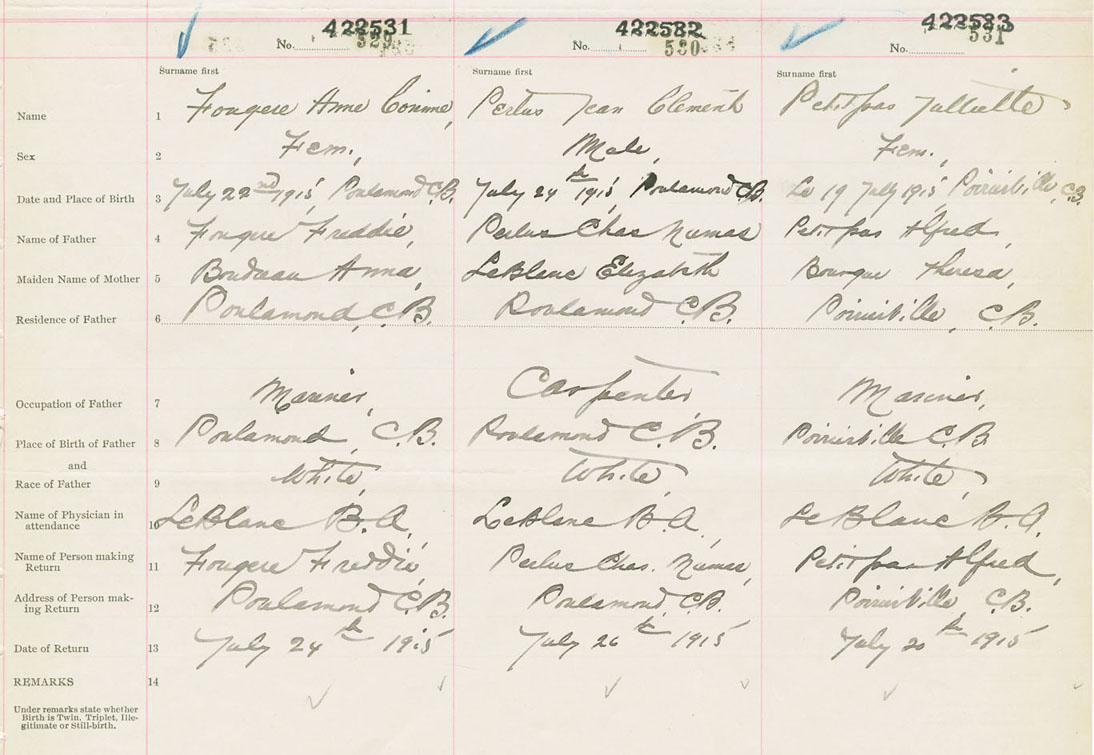 422531 422582 422583
No. 529 No. 530 No. 531
Surname first Surname first Surname first
Name 1 Fougere Anne Corinne, Pertus Jean Clement Petitpas Julliette
Sex 2 Fem., Male, Fem.,
Date and Place of Birth 3 July 22nd 1915, Poulamond C.B. July 24th 1915, Poulamond C.B. Le 19 July 1915 Poirierville, C.B.
Name of Father 4 Fougere Freddie, Pertus Chas Numas Petitpas Alfred,
Maiden Name of Mother 5 Boudreau Anna, LeBlanc Elizabeth Bourque Theresa,
Residence of Father 6 Poulamond, C.B. Poulamond C.B. Poirierville, C.B.
Occupation of Father 7 Mariner, Carpenter, Mariner,
Place of Birth of Father 8 Poulamond, C.B. Poulamond C.B. Poirierville C.B.
and
Race of Father 9 White, White, White,
Name of Physician in
attendance 10 LeBlanc B.A, LeBlanc B.A, LeBlanc B.A,
Name of Person making
Return 11 Fougere Freddie, Pertus Chas. Numas, Petitpas Alfred,
Address of Person mak-
ing Return 12 Poulamond C.B. Poulamond, C.B. Poirierville, C.B.
Date of Return 13 July 24th 1915 July 26th 1915 July 20th 1915
REMARKS 14
Under remarks state whether
Birth is Twin, Triplet, Ille-
gitimate or Still-birth.